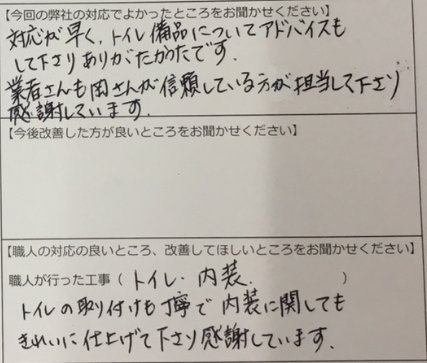 【今回の弊社の対応でよかったところをお聞かせください】
対応が早く、トイレ備品についてアドバイスも
して下さりありがたかったです。
業者さんも岡さんが信頼している方が担当して下さり
感謝しています。
【今後改善した方が良いところをお聞かせください】
【職人の対応の良いところ、改善してほしいところをお聞かせください】
職人が行った工事（ トイレ・内装. ）
トイレの取り付けも丁寧で内装に関しても
きれいに仕上げて下さり感謝しています。